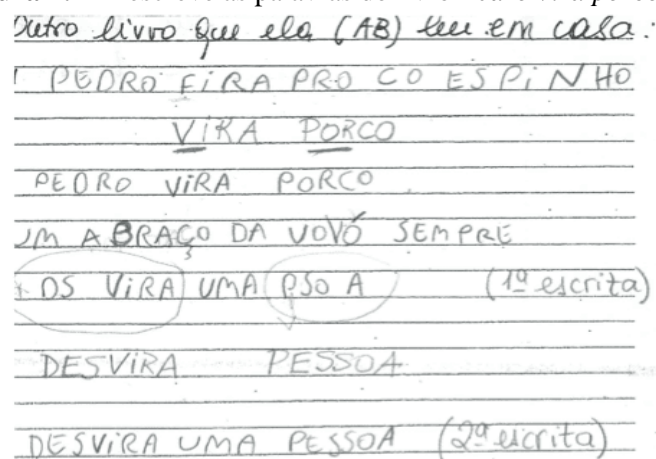 Outro livro que ela (AB) leu em casa:
PEDRO FIRA PRO CO ESPINHO
VIRA PORCO
PEDRO VIRA PORCO
UM ABRAÇO DA VOVÓ SEMPRE
DS VIRA UMA PSO A (1ª escrita)
DESVIRA PESSOA
DESVIRA UMA PESSOA (2ª escrita)